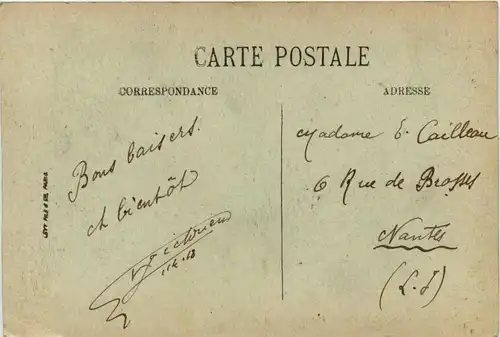 CARTE POSTALE
CORRESPONDANCE
ADRESSE
Bons baisers.
et bientôt
LÉVY FILS & Cie, PARIS
Madame E. Cailleau
6 Rue de Brosses
Nantes
(L.I)